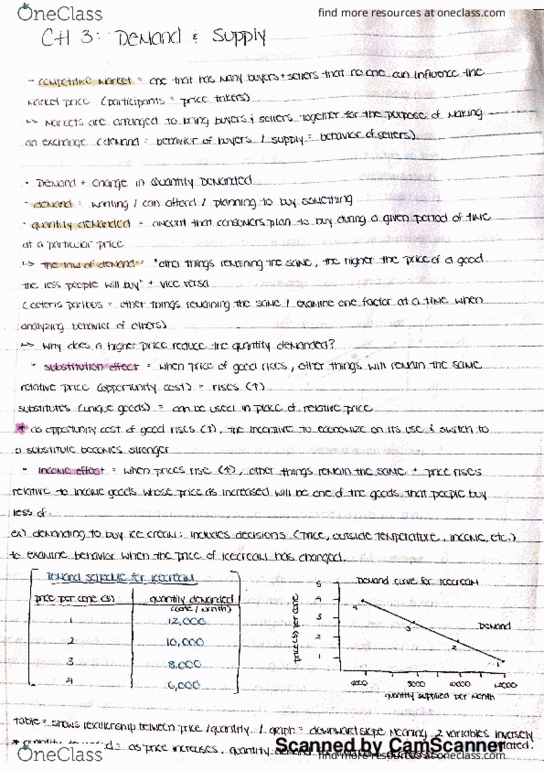 OneClass
find more resources at oneclass.com
CH 3: Demand & Supply
- competitive market = one that has many buyers + sellers that no one can influence the
market price (participants = price takers)
↳ markets are arranged to bring buyers & sellers together for the purpose of making
an exchange (demand = behavior of buyers / supply = behavior of sellers)
• Demand + change in Quantity Demanded
- demand: wanting / can afford / planning to buy something
- quantity demanded = amount that consumers plan to buy during a given period of time
at a particular price
↳ the law of demand: "other things remaining the same, the higher the price of a good
the less people will buy" + vice versa
(ceteris paribus = other things remaining the same / examine one factor at a time when
analyzing behavior of others)
↳ why does a higher price reduce the quantity demanded?
• substitution effect = when price of good rises, other things will remain the same
relative price (opportunity cost) = rises (↑)
substitutes (unique goods) = can be used in place of relative price
* as opportunity cost of good rises (↑), the incentive to economize on its use & switch to
a substitute becomes stronger
• income effect = when prices rise (↑), other things remain the same + price rises
relative to income goods whose price as increased will be one of the goods that people buy
less of.
ex) demanding to buy ice cream: includes decisions (price, outside temperature, income, etc.)
to examine behavior when the price of icecream has changed.
Demand schedule for icecream
price per cone ($) quantity demanded
(cone / month)
1 12,000
2 10,000
3 8,000
4 6,000
Demand curve for icecream
price ($) per cone
Demand
quantity supplied per month
table = shows relationship between price / quantity / graph = downward slope meaning 2 variables inversely
related.
= as price increases, quantity
Scanned by CamScanner
OneClass
find more resources at oneclass.com